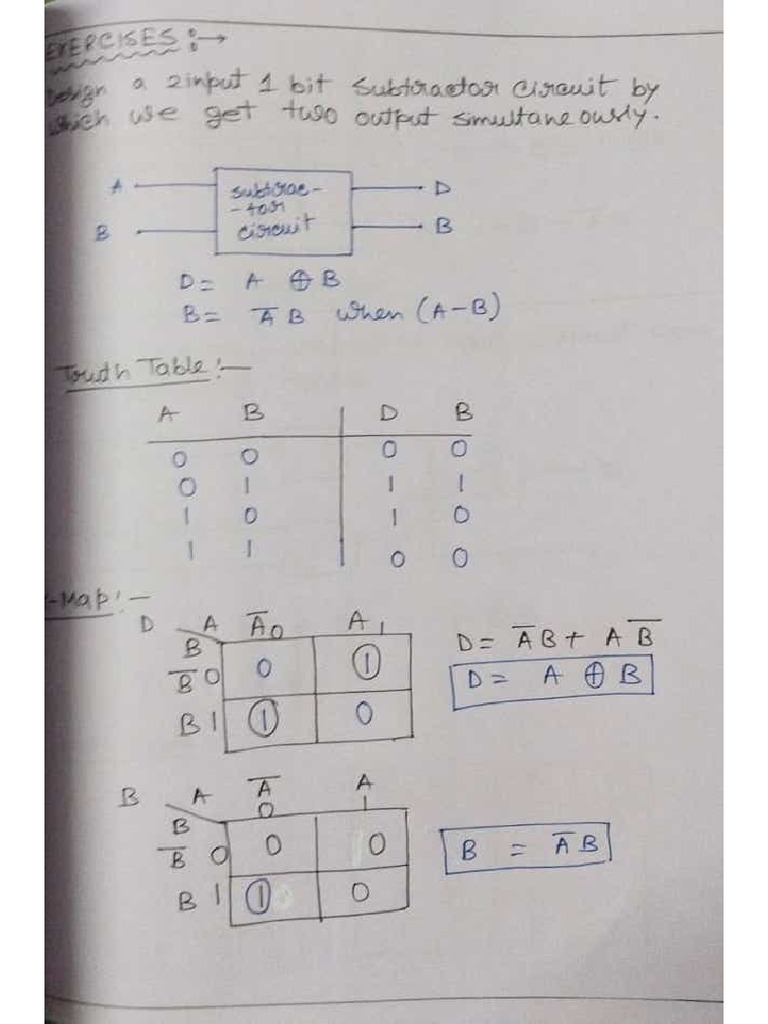 EXERCISES :→
Design a 2input 1 bit Subtractor circuit by
which we get two output simultaneously.
A
subtrac-
-tor
circuit
D
B
B
D = A ⊕ B
B = A̅ B when (A-B)
Truth Table :-
A B D B
0 0 0 0
0 1 1 1
1 0 1 0
1 1 0 0
-Map :-
D A A̅ 0 A 1
B
B̅ 0 0 1
B 1 1 0
D = A̅ B + A B̅
D = A ⊕ B
B A A̅ A
0 1
B
B̅ 0 0 0
B 1 1 0
B = A̅ B